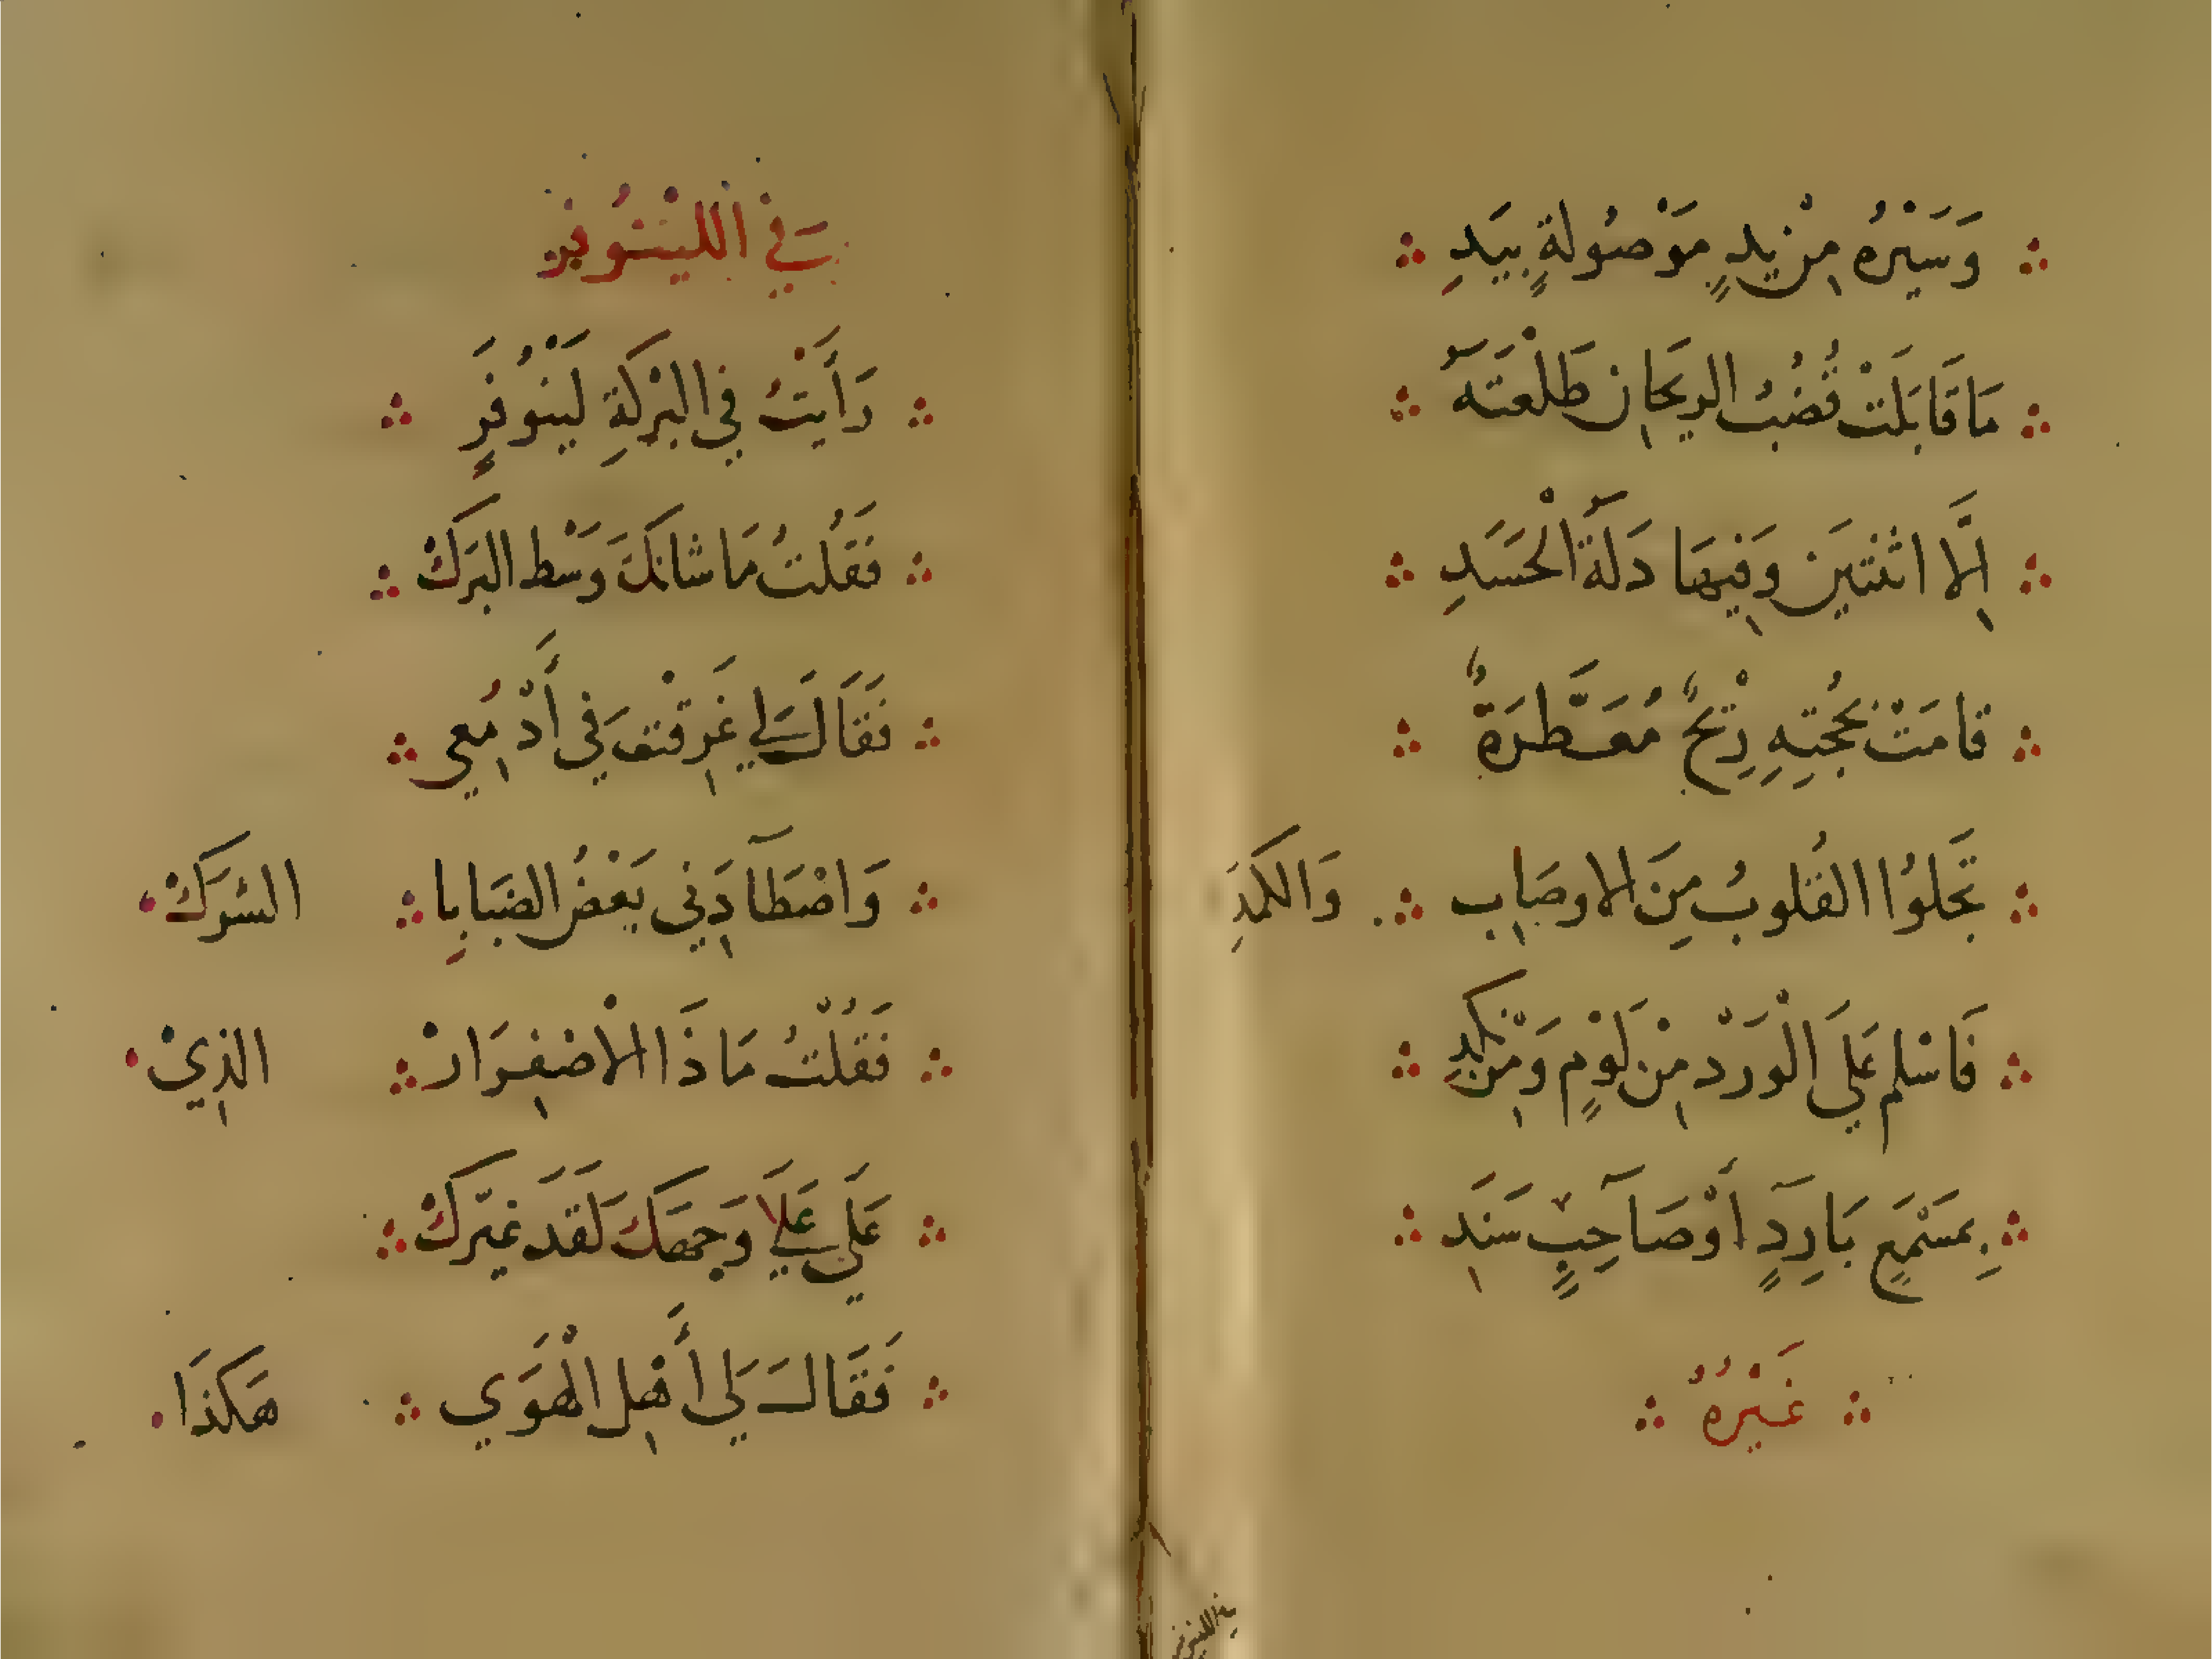 وَسَيْرُهُ مِنْ يَدٍ مَوْصُولَةٍ بِيَدِ
مَا قَابَلَتْ قُضُبُ الريحَان طَلْعَتَهُ
إِلَّا اثنتَين وَفيهَا دَلَةُ الْحَسَدِ
قامَتْ بحُجَتِهِ رِيْحٌ مُعَطَّرَةٌ
تَجلوُا القُلوبُ مِنَ الاوصَاب وَالكَمَدِ
فَاسْلم عَلَي الْوَرَدْ مِنْ لَوْمٍ وَمِنْ نكدِ
بِمَسَمَعٍ بَارِدٍ أَوْصَاحِبٍ سَنَدِ
غَيْرُهُ
في اللينُوفر
رَأَيْتُ في البْركَةِ لَيْنُوفَرٍ
فَقُلتُ مَا شانكَ وَسْط البَرَكْ
فَقَالَ لي غَرِقْت في أَدْمُعِي
وَاصْطَادَنِي بَعْضُ الضبَابا السُرَكْ
فَقُلْتُ مَا ذَا الْاصْفِرَارْ الذِيْ
عَلَي عَلَا وَجهَكَ لَقَدَ غيّرَكْ
فَقَالَ لِي أَهْل الْهَوَي هَكذَا